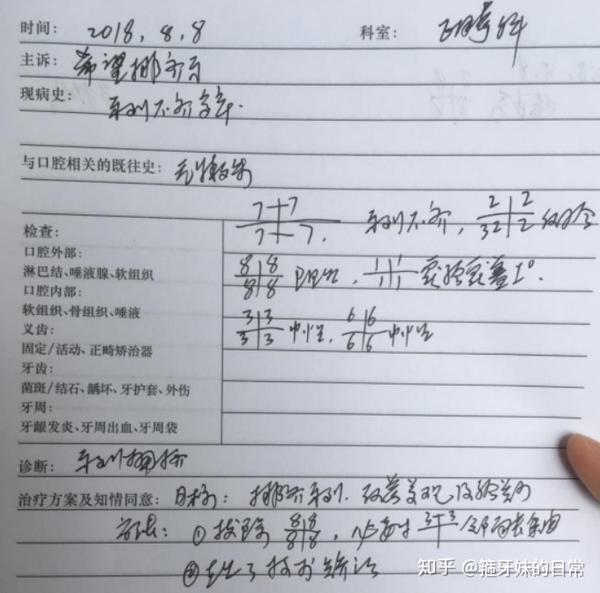 时间： 2018.8.8 科室： 正畸科
主诉： 希望排齐牙
现病史： 牙列不齐多年.
与口腔相关的既往史： 无特殊
检查： 7 7 / 7 7. 牙列不齐, 2 2 / 32 2
口腔外部：
淋巴结、唾液腺、软组织 8 8 / 8 8 阻生, 1 1 / 1 1 深覆𬌗深覆盖I°.
口腔内部：
软组织、骨组织、唾液 3 3 / 3 3 中性, 6 6 / 6 6 中性
义齿：
固定/活动、正畸矫治器
牙齿：
菌斑/结石、龋坏、牙护套、外伤
牙周：
牙龈发炎、牙周出血、牙周袋
诊断： 牙列拥挤
治疗方案及知情同意： 目标： 排齐牙列. 改善美观及
方法： ①拔除 8 8 / 8 8, 必要时
② 技术矫治
知乎 @箍牙妹的日常